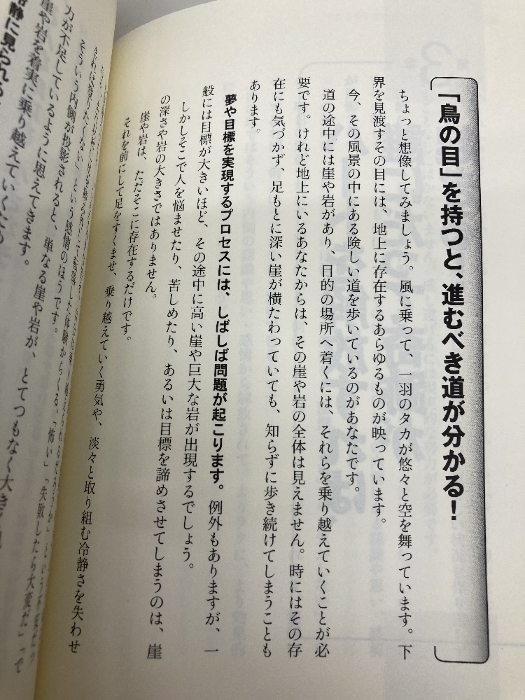 「鳥の目」を持つと、進むべき道が分かる！
ちょっと想像してみましょう。風に乗って、一羽のタカが悠々と空を舞っています。下
界を見渡すその目には、地上に存在するあらゆるものが映っています。
今、その風景の中にある険しい道を歩いているのがあなたです。
道の途中には崖や岩があり、目的の場所へ着くには、それらを乗り越えていくことが必
要です。けれど地上にいるあなたからは、その崖や岩の全体は見えません。時にはその存
在にも気づかず、足もとに深い崖が横たわっていても、知らずに歩き続けてしまうことも
あります。
夢や目標を実現するプロセスには、しばしば問題が起こります。例外もありますが、一
般には目標が大きいほど、その途中に高い崖や巨大な岩が出現するでしょう。
しかしそこで人を悩ませたり、苦しめたり、あるいは目標を諦めさせてしまうのは、崖
の深さや岩の大きさではありません。
崖や岩は、ただそこに存在するだけです。
それを前にして足をすくませ、乗り越えていく勇気や、淡々と取り組む冷静さを失わせ
「怖い」「失敗したら大変だ」「
そういう内側が投影されると、単なる崖や岩が、とてつもなく大き
力が不足しているように思えてきます。
崖や岩を着実に乗り越えていくた
静に見られる